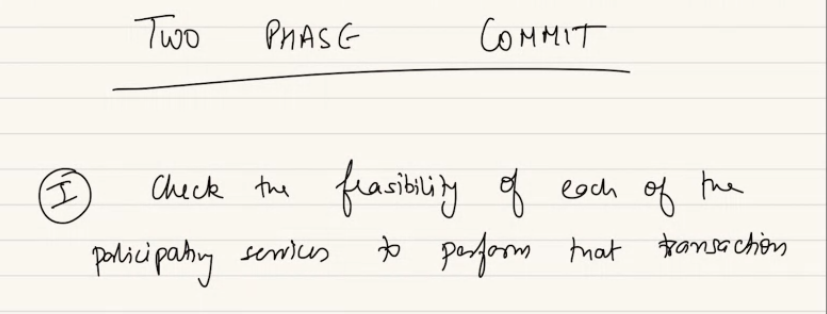 TWO PHASE COMMIT
I Check the feasibility of each of the
participating services to perform that transaction